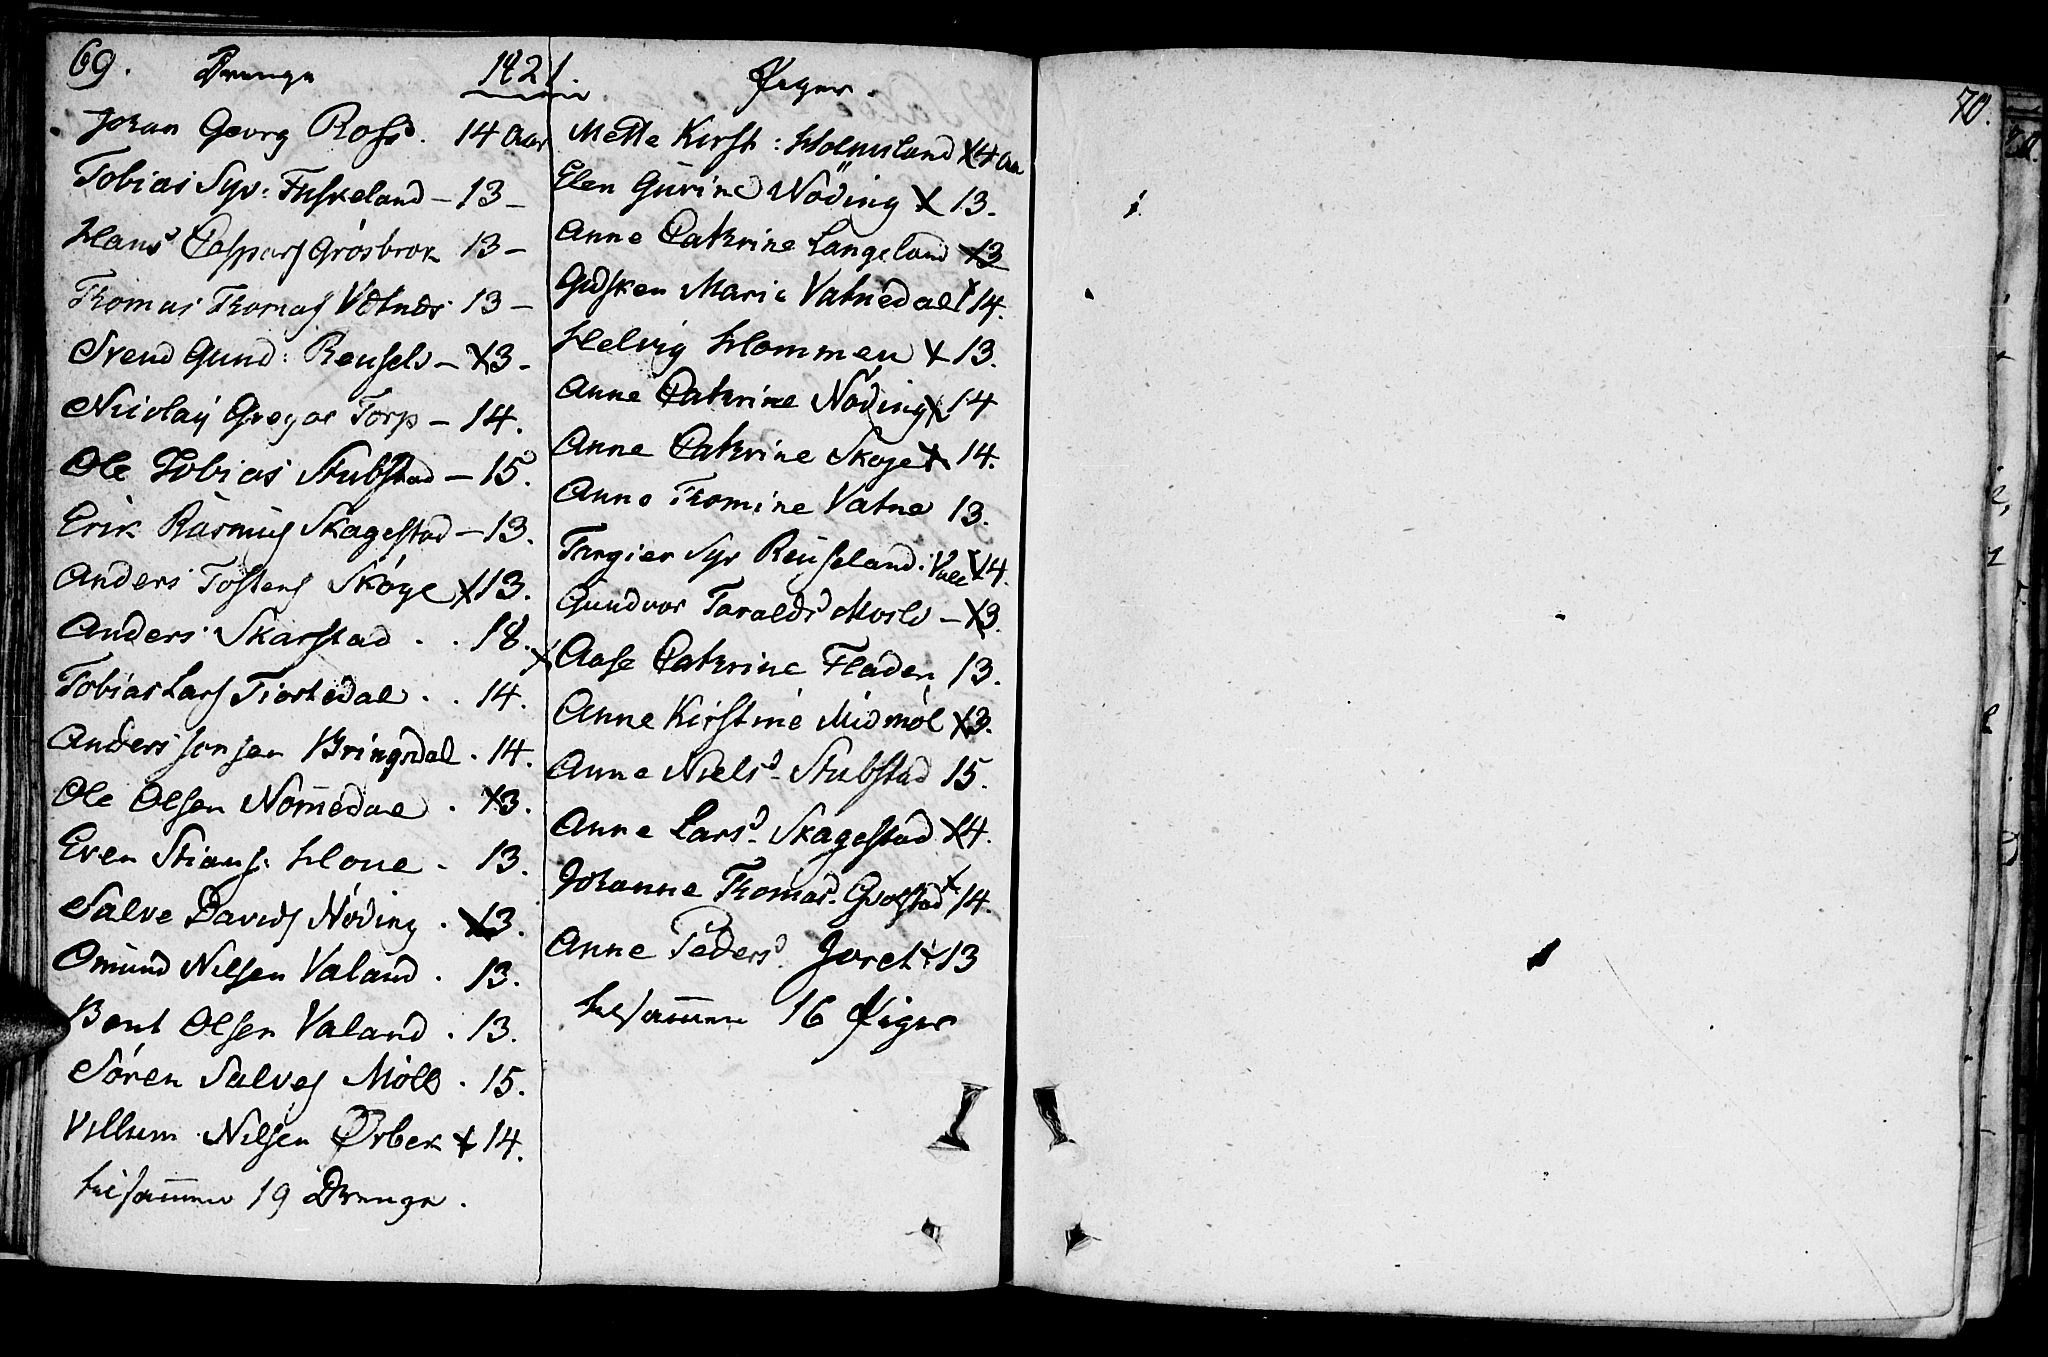 69. Drenge 1821.
Johan Georg Ross. 14 Aar
Tobias Syv: Fuskeland - 13 -
Hans Caspers Grosbrok 13 -
Thomas Thomas Vatnes 13 -
Svend Gund: Reuseld - 13 -
Nicolay Gregor Torp - 14.
Ole Tobias Stubstad - 15.
Erik Rasmus Skagestad - 13.
Anders Tostens Skøge 13.
Anders Skarstad . . 18.
Tobias Lars Tiostedal . . 14.
Anders Jensen Bringsdal . 14.
Ole Olsen Nomedal . 13.
Even Stians: Houe . 13.
Salve Davids Nøding . 13.
Omund Nilsen Valand . 13.
Bent Olsen Valand . 13.
Søren Salves Møll . 15.
Villum Nilsen Ørbek 14.
tilsammen 19 Drenge .
Piger .
Mette Kirst: Holmsland 14 Aar
Elen Gurine Nöding 13.
Anne Catrine Langeland 13
Gidsken Maria Vatnedal 14.
Helvig Hommen 13.
Anne Catrine Nöding 14
Anne Catrine Skøge 14.
Anne Thomine Vatne 13.
Targier Syv Reuseland. 14.
Gundvor Taralds Mosld - 13.
Aase Catrine Fladen 13.
Anne Kirstine Midmøl 13.
Anne Niels Stubstad 15.
Anne Lars Skagestad 14.
Johanne Thomas 14.
Anne Peders Joret 13
tilsammen 16 Piger
70.